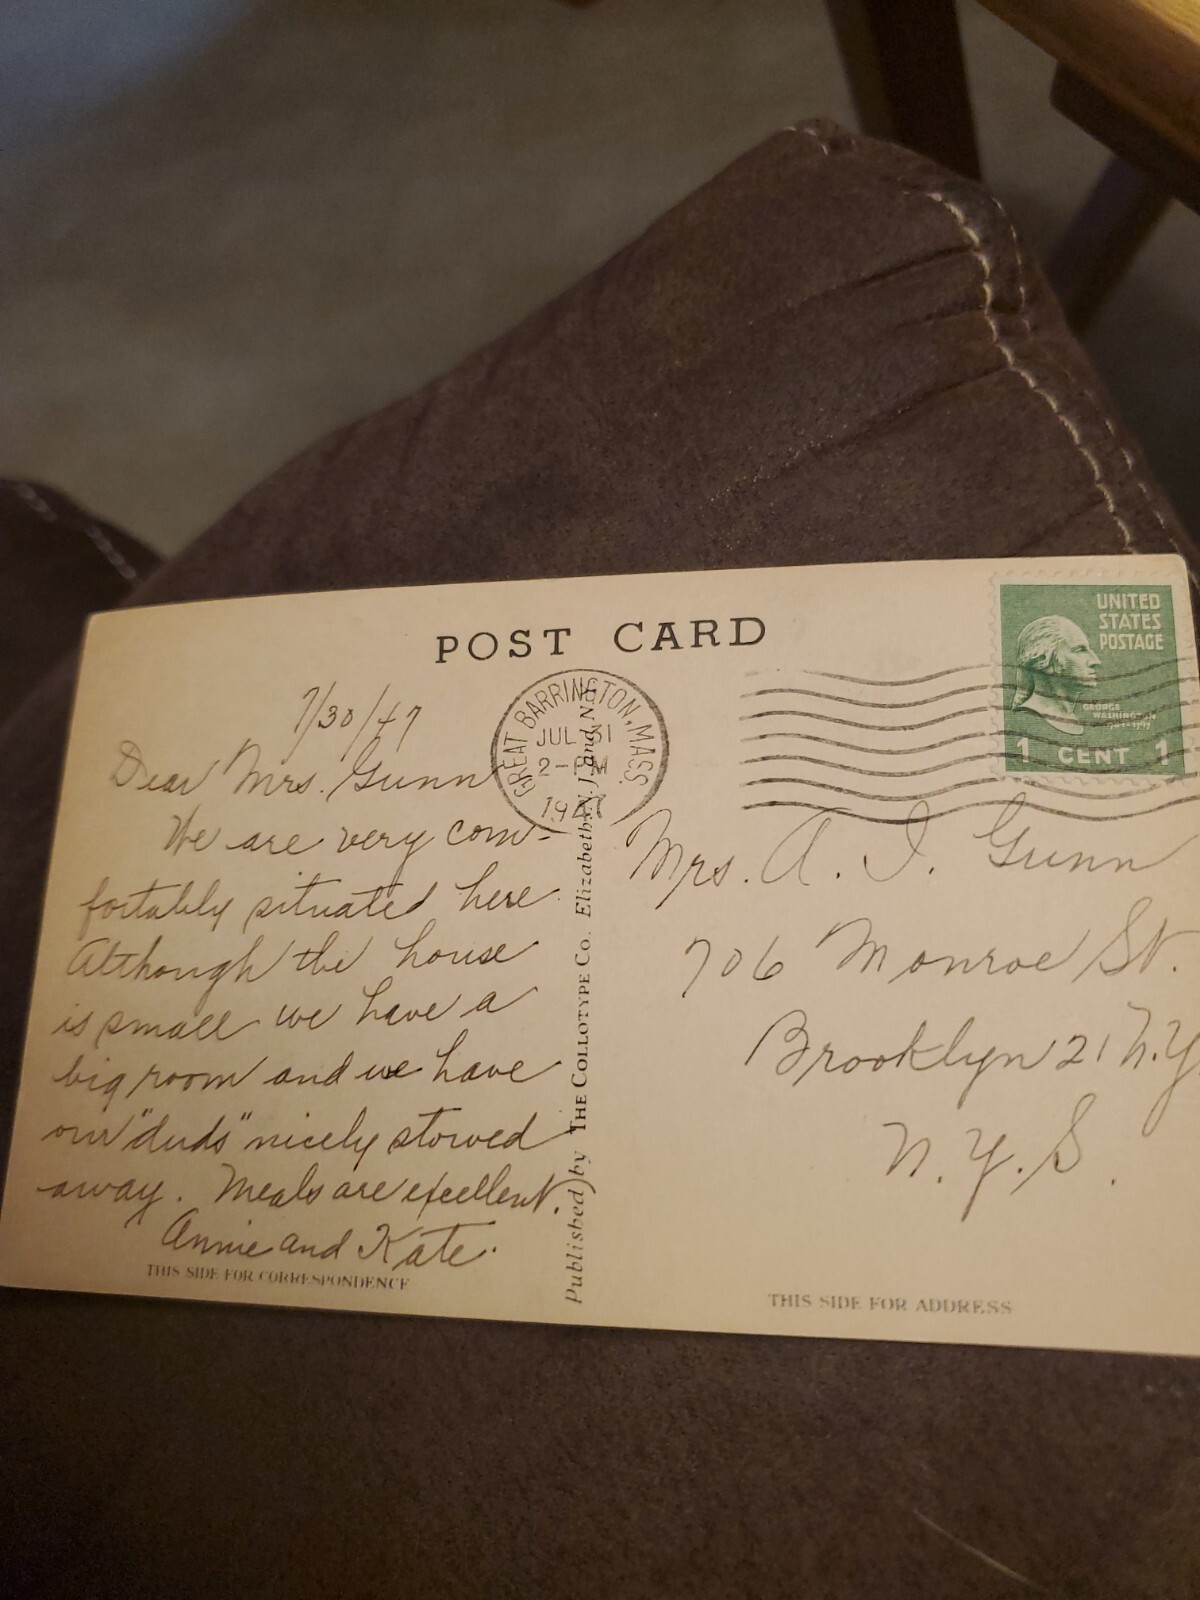 POST CARD
7/30/47
Dear Mrs. Gunn
We are very com-
fortably situated here
Although the house
is small we have a
big room and we have
our "duds" nicely stowed
away. Meals are excellent.
Annie and Kate.
THIS SIDE FOR CORRESPONDENCE
GREAT BARRINGTON, MASS.
JUL 31
2-PM
1947
Published by THE COLLOTYPE CO. Elizabeth, N.J. and N.Y.
UNITED
STATES
POSTAGE
GEORGE
WASHINGTON
1 CENT 1
Mrs. A. I. Gunn
706 Monroe St.
Brooklyn 21 N.Y.
N.Y.S.
THIS SIDE FOR ADDRESS